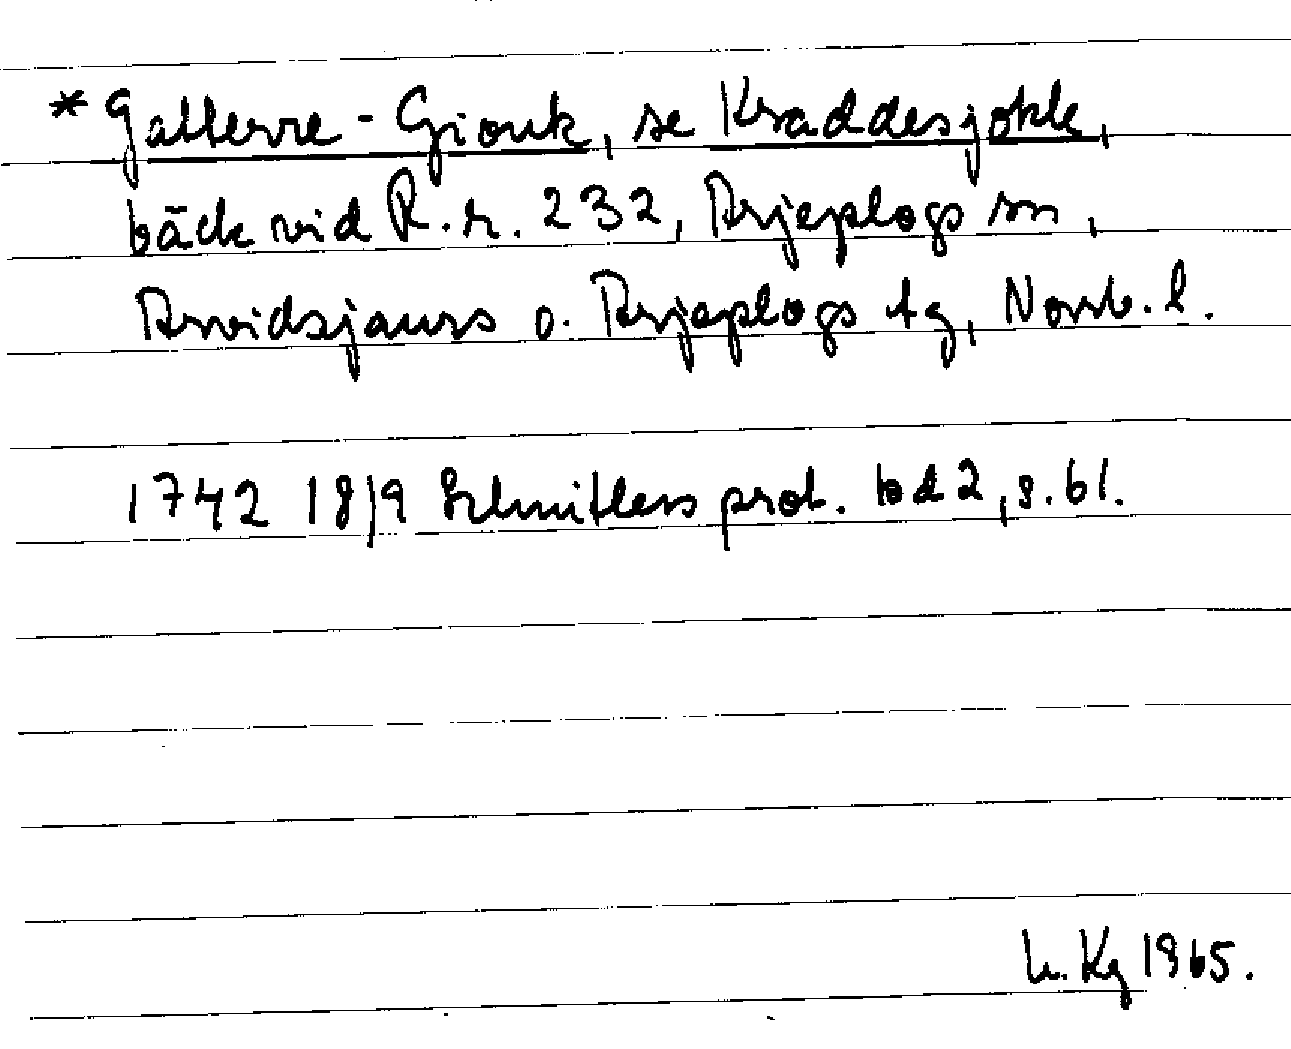 *Gallerre-Giouk, se Kraddesjokk,
bäck vid R.r. 232, Arjeplogs sn,
Arvidsjaurs o. Arjeplogs tg, Norrb. l.
1742 18/9 Schnitlers prot. bd 2, s. 61.
L. Kg 1965.